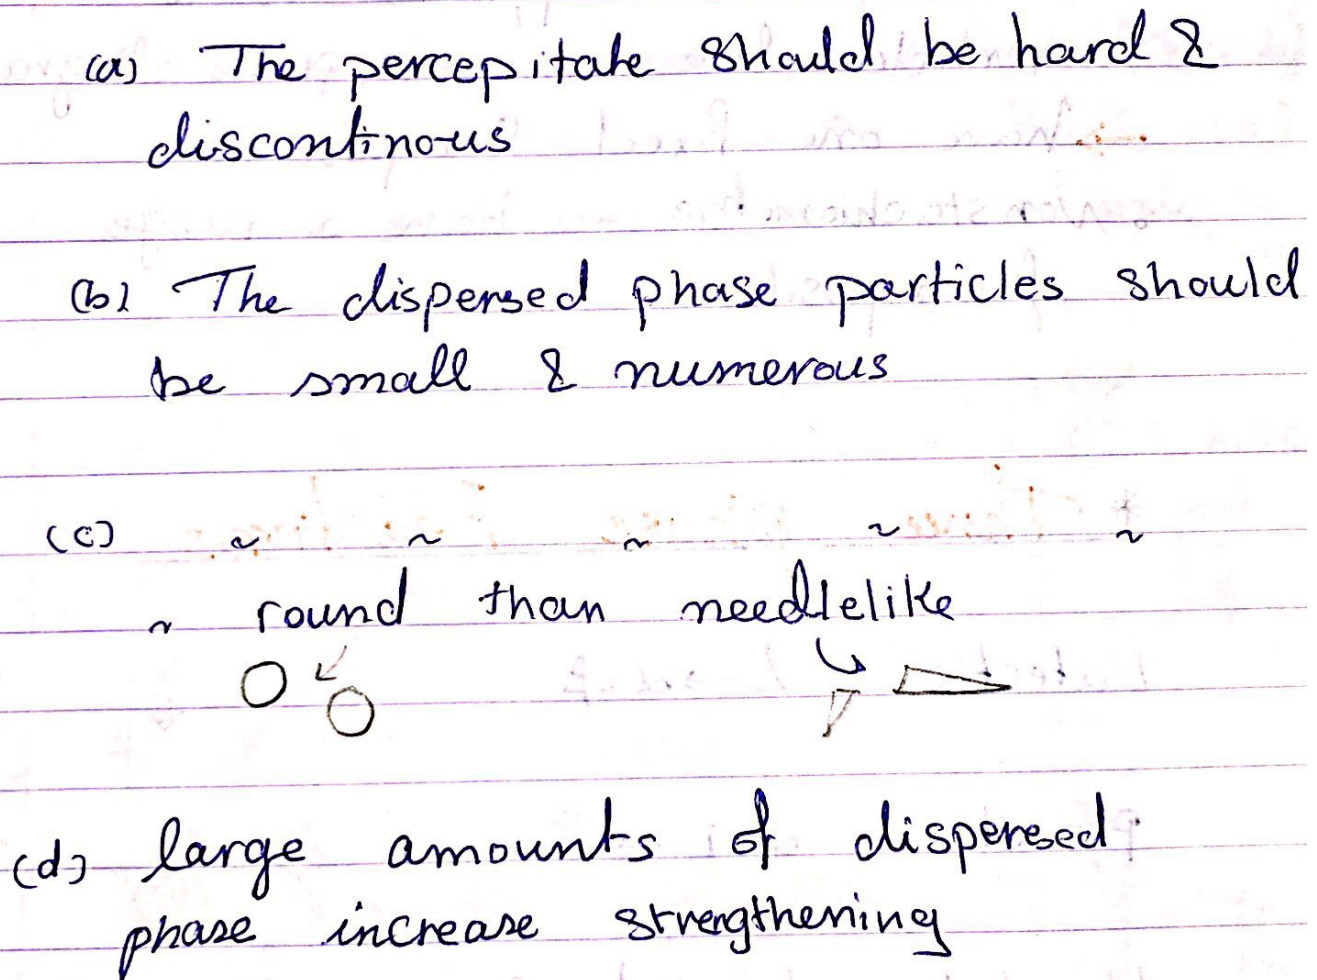 (a) The percepitate should be hard &
discontinous
(b) The dispersed phase particles should
be small & numerous
(c) ~ ~ ~ ~ ~
~ round than needlelike
(d) large amounts of dispersed
phase increase strengthening